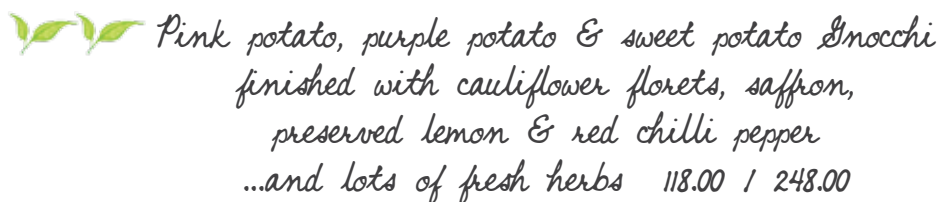 Pink potato, purple potato & sweet potato Gnocchi
finished with cauliflower florets, saffron,
preserved lemon & red chilli pepper
...and lots of fresh herbs 118.00 / 248.00